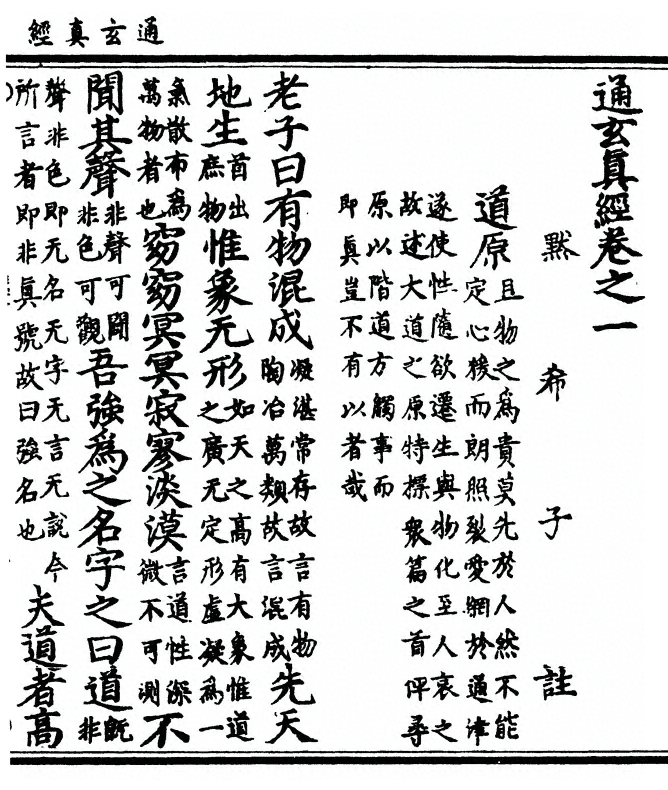 通玄真經
通玄眞經卷之一
默希子註
道原且物之爲貴莫先於人然不能定心猨而朗照裂愛網於通津
遂使性隨欲遷生與物化至人哀之故述大道之原特摽衆篇之首俾尋
原以階道方觸事而即眞豈不有以者哉
老子曰有物混成凝湛常存故言有物陶冶萬類故言混成先天
地生首出庶物惟象无形如天之高有大象惟道之廣无定形虛凝爲一
氣散布爲萬物者也窈窈冥冥寂寥淡漠言道性深微不可測不
聞其聲非聲可聞非色可觀吾強爲之名字之曰道旣非
聲非色即无名无字无言无說今所言者即非眞號故曰強名也夫道者高